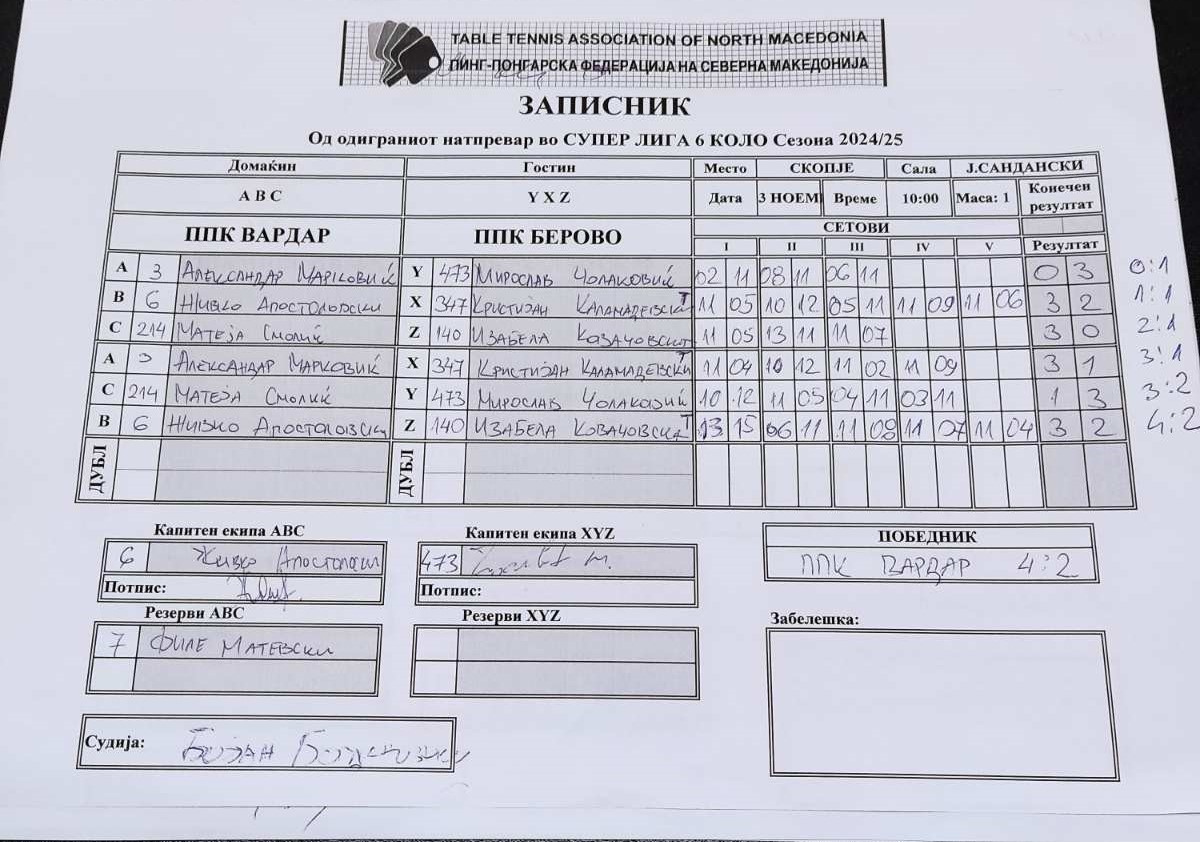 TABLE TENNIS ASSOCIATION OF NORTH MACEDONIA
ПИНГ-ПОНГАРСКА ФЕДЕРАЦИЈА НА СЕВЕРНА МАКЕДОНИЈА
ЗАПИСНИК
Од одиграниот натпревар во СУПЕР ЛИГА 6 КОЛО Сезона 2024/25
Домаќин Гостин Место СКОПЈЕ Сала Ј.САНДАНСКИ
A B C Y X Z Дата 3 НОЕМ Време 10:00 Маса: 1 Конечен резултат
ППК ВАРДАР ППК БЕРОВО СЕТОВИ
I II III IV V Резултат
A 3 Александар Марковиќ Y 473 Мирослав Чолаковиќ 02 11 08 11 06 11 0 3 0:1
B 6 Живко Апостоловски X 347 Кристијан Каламадевски 11 05 10 12 05 11 11 09 11 06 3 2 1:1
C 214 Матеја Смолиќ Z 140 Изабела Ковачовскит 11 05 13 11 11 07 3 0 2:1
A 3 Александар Марковиќ X 347 Кристијан Каламадевски 11 04 10 12 11 02 11 09 3 1 3:1
C 214 Матеја Смолиќ Y 473 Мирослав Чолаковиќ 10 12 11 05 04 11 03 11 1 3 3:2
B 6 Живко Апостоловски Z 140 Изабела Ковачовска 13 15 06 11 11 08 11 07 11 04 3 2 4:2
ДУБЛ ДУБЛ
Капитен екипа ABC Капитен екипа XYZ ПОБЕДНИК
6 Живко Апостолоски 473 ППК ВАРДАР 4:2
Потпис: Потпис:
Резерви ABC Резерви XYZ Забелешка:
7 Филе Матевски
Судија: Бојан